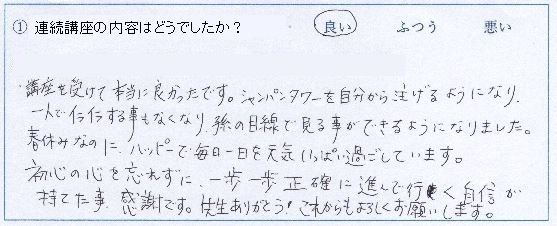 ① 連続講座の内容はどうでしたか? 良い ふつう 悪い
講座を受けて本当に良かったです。シャンパンタワーを自分から注げるようになり、
一人でイライラする事もなくなり、孫の目線で見る事ができるようになりました。
春休みなのに、ハッピーで毎日一日を元気いっぱい過ごしています。
初心の心を忘れずに、一歩一歩正確に進んで行く自信が
持てた事、感謝です。先生ありがとう!これからもよろしくお願いします。